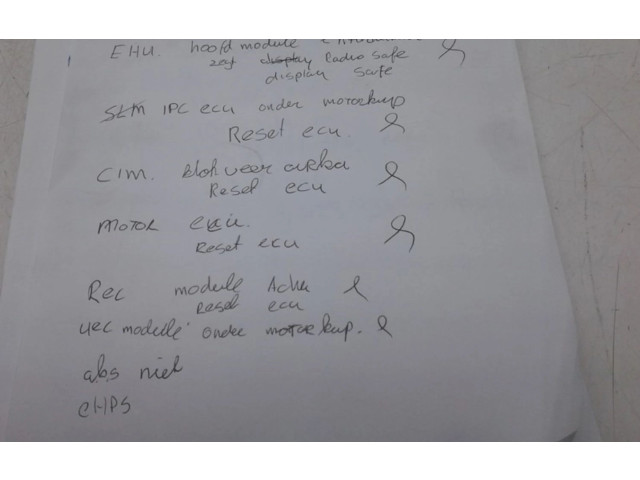 EHU. hoofd module
zegt display Radio safe
display safe
SLM IPC ecu onder motorkup
Reset ecu.
CIM. klok veer airba
Reset ecu
MOTOR ecu.
Reset ecu
Rec module Achu
Reset ecu
uec module onder motorkup.
abs niet
EHPS